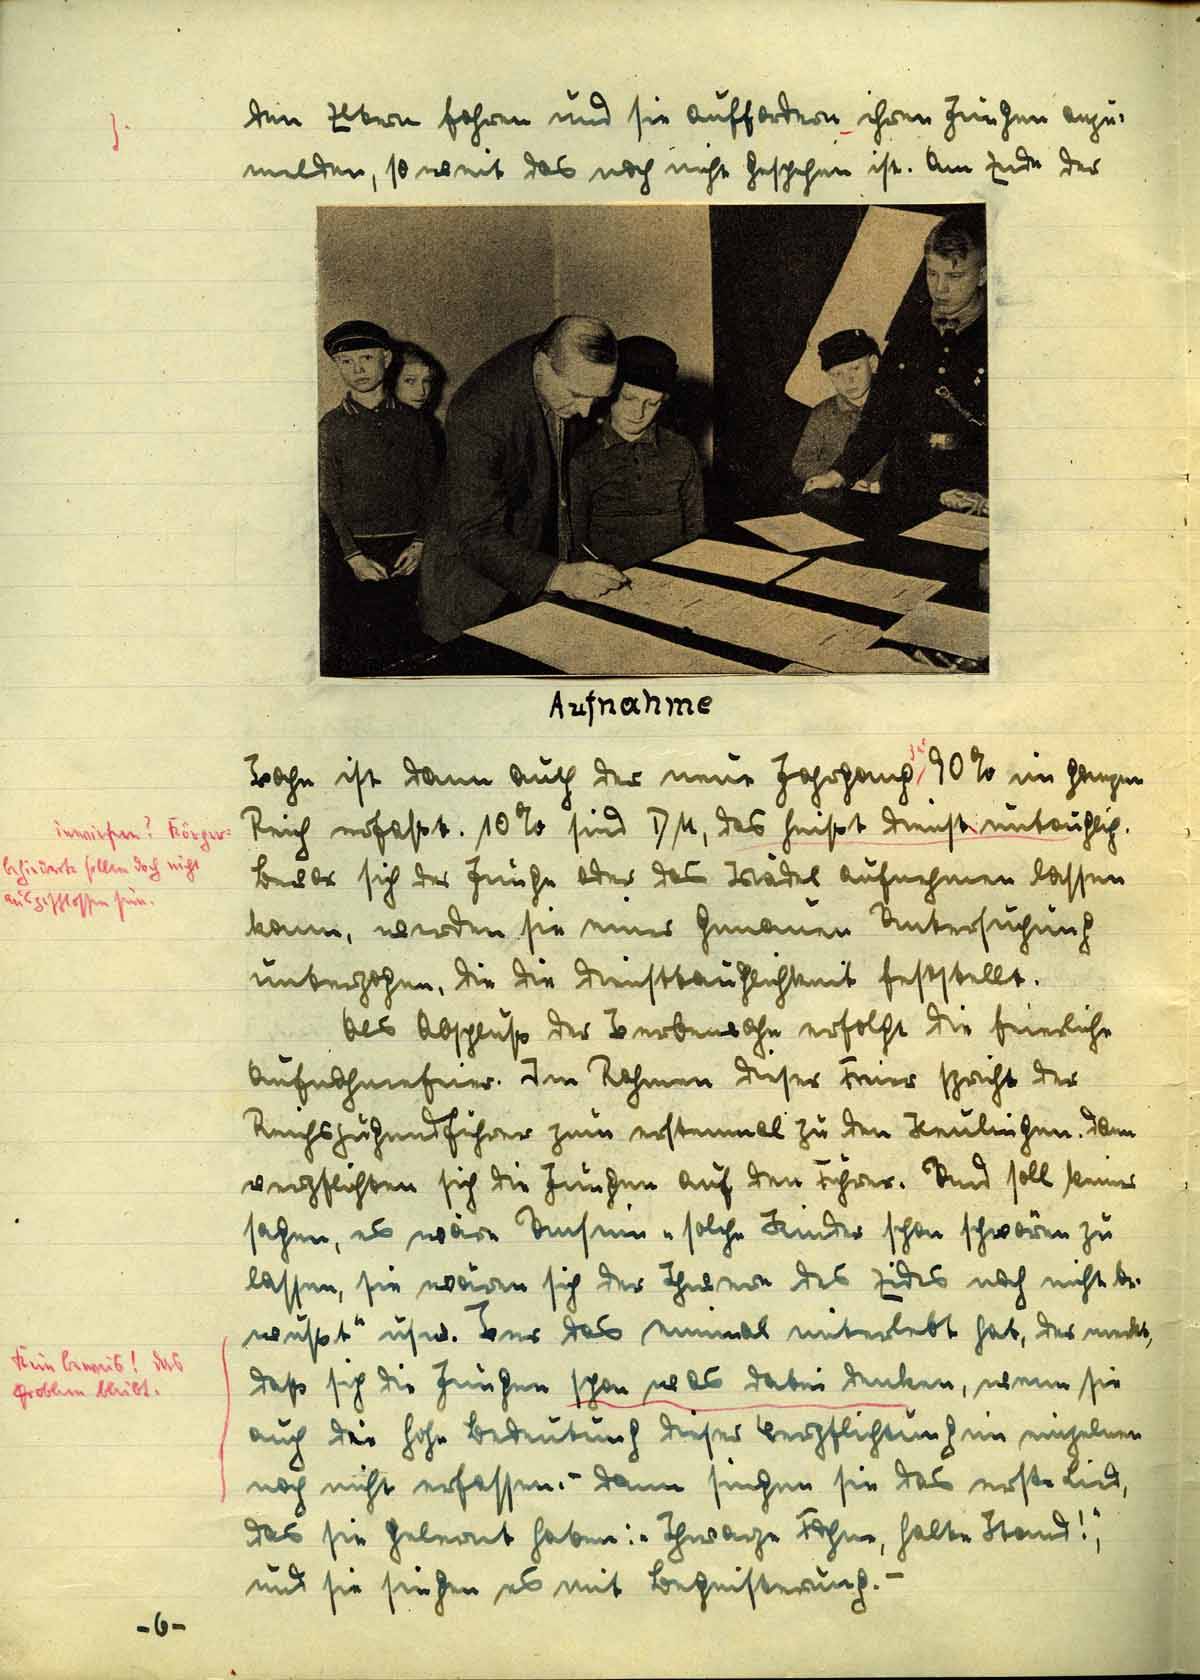 den Eltern fahren und sie auffordern ihren Jungen anzu-
melden, so weit das noch nicht geschehen ist. Am Ende der
Aufnahme
Woche ist dann auch der neue Jahrgang zu 90% im ganzen
Reich erfasst. 10% sind DU, das heisst dienstuntauglich.
inwiefern? Körper-
behinderte sollen doch nicht
ausgeschlossen sein.
Bevor sich der Junge oder das Mädel aufnehmen lassen
kann, werden sie einer genauen Untersuchung
unterzogen, die die Diensttauglichkeit feststellt.
Als Abschluß der Werbewoche erfolgt die feierliche
Aufnahmefeier. Im Rahmen dieser Feier spricht der
Reichsjugendführer zum erstenmal zu den Neulingen. Dann
verpflichten sich die Jungen auf den Führer. Und soll keiner
sagen, es wäre Unsinn „solche Kinder schon schwören zu
lassen, sie wären sich der Schwere des Eides noch nicht be-
wusst“ usw. Wer das einmal miterlebt hat, der merkt,
daß sich die Jungen schon was dabei denken, wenn sie
Kein Beweis! Das
Problem bleibt.
auch die hohe Bedeutung dieser Verpflichtung im einzelnen
noch nicht erfassen.- Dann singen sie das erste Lied,
das sie gelernt haben: „Schwarze Fahne, halte Stand!“,
und sie singen es mit Begeisterung.-
-6-